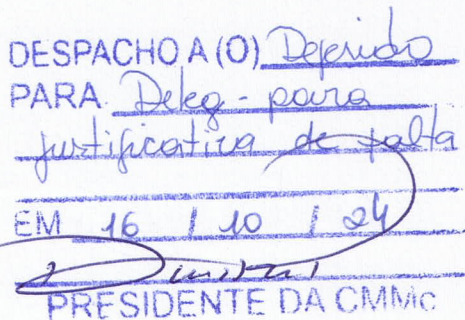 DESPACHO A (O) Deferido
PARA Deleg - para
justificativa de falta
EM 16 / 10 / 24
PRESIDENTE DA CMMC